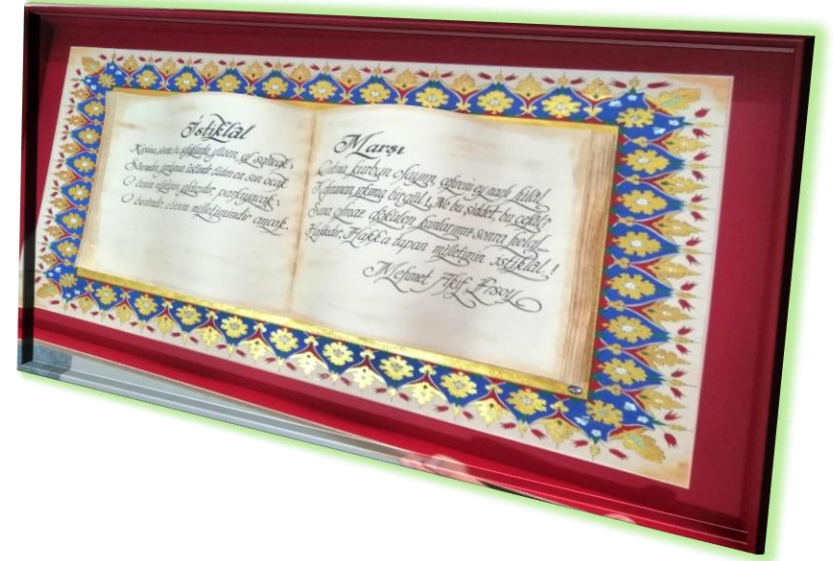 İstiklâl
Korkma, sönmez bu şafaklarda yüzen al sancak;
Sönmeden yurdumun üstünde tüten en son ocak
O benim milletimin yıldızıdır parlayacak;
O benimdir o benim milletimindir ancak.
Marşı
Çatma, kurban olayım, çehreni ey nazlı hilâl
Kahraman ırkıma bir gül! Ne bu şiddet bu celâl?
Sana olmaz dökülen kanlarımız sonra helâl...
Hakkıdır, Hakk'a tapan milletimin istiklâl!
Mehmet Âkif Ersoy